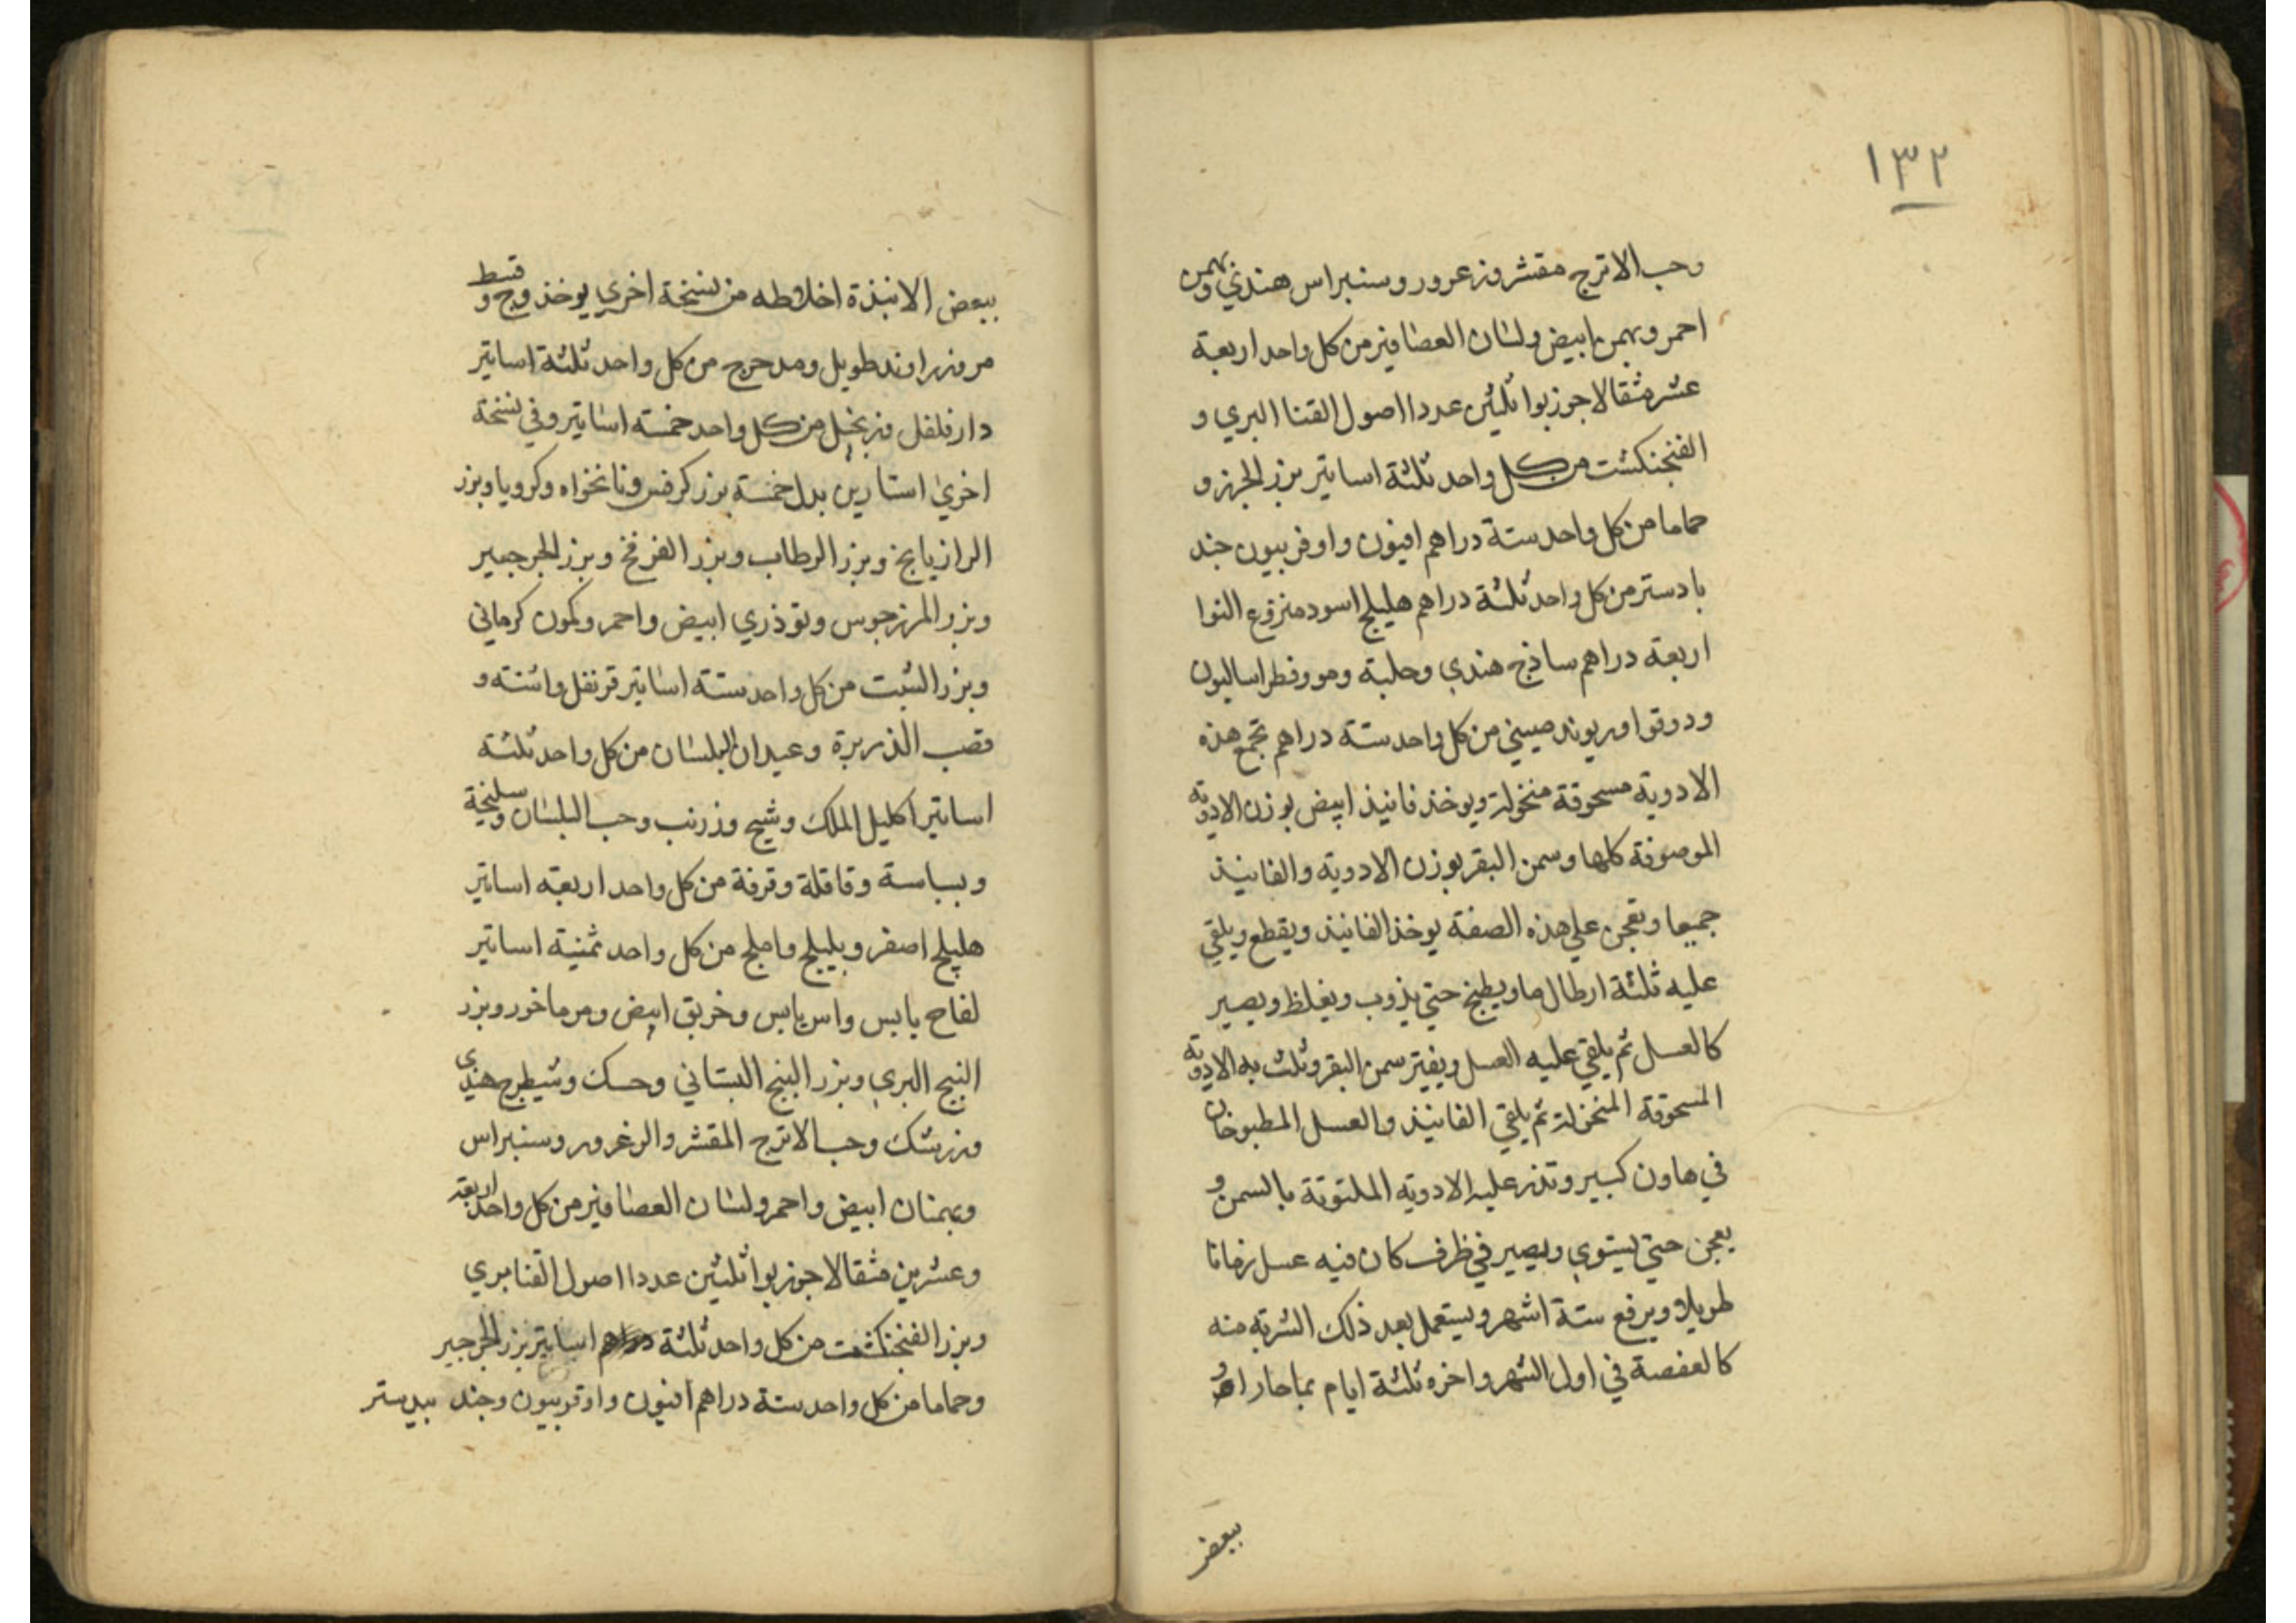 ١٣٢
وحب الاترج مقشر وزعرور وسنبراس هندي وبهمن
احمر وبهمن ابيض ولسان العصافير من كل واحد اربعة
عشر مثقالا جوزبوا ثلثين عددا اصول القنا البري و
الفنجنكشت من كل واحد ثلثة اساتير بزر الجزر و
حماما من كل واحد ستة دراهم افيون واوفربيون جند
بادستر من كل واحد ثلثة دراهم هليلج اسود منزوع النوا
اربعة دراهم ساذج هندي وحلبة ومو وفطراساليون
ودوقوا وريوند صيني من كل واحد ستة دراهم تجمع هذه
الادوية مسحوقة منخولة ويوخذ فانيذ ابيض بوزن الادوية
الموصوفة كلها وسمن البقر بوزن الادوية والفانيذ
جميعا وتعجن علي هذه الصفة يوخذ الفانيذ ويقطع ويلقي
عليه ثلثة ارطال ما ويطبخ حتي يذوب ويغلظ ويصير
كالعسل ثم يلقي عليه العسل ويفتر سمن البقر وتلت به الادوية
المسحوقة المنخولة ثم يلقي الفانيذ والعسل المطبوخان
في هاون كبير وتذر عليه الادوية الملتوتة بالسمن و
يعجن حتي يستوي ويصير في ظرف كان فيه عسل زمانا
طويلا ويرفع ستة اشهر ويستعمل بعد ذلك الشربة منه
كالعفصة في اول الشهر واخره ثلثة ايام بما حار او
ببعض
ببعض الانبذة اخلاطه من نسخة اخري يوخذ وج وقسط
مر وزراوند طويل ومدحرج من كل واحد ثلثة اساتير
دارفلفل وزنجبيل من كل واحد خمسة اساتير وفي نسخة
اخري استارين بدل خمسة بزر كرفس ونانخواه وكرويا وبزر
الرازيانج وبزر الرطاب وبزر الفرفخ وبزر الجرجير
وبزر المرزجوس وتوذري ابيض واحمر وكمون كرماني
وبزر الشبت من كل واحد ستة اساتير قرنفل واشنه و
قصب الذريرة وعيدان البلسان من كل واحد ثلثة
اساتير اكليل الملك وشيح وزرنب وحب البلسان وسليخة
وبسباسة وقاقلة وقرفة من كل واحد اربعة اساتير
هليلج اصفر وبليلج واملج من كل واحد ثمنية اساتير
لفاح يابس واس يابس وخربق ابيض ومرماخور وبزر
البنج البري وبزر البنج البستاني وحسك وشيطرج هندي
وزرشك وحب الاترج المقشر والزعرور وسنبراس
وبهمنان ابيض واحمر ولسان العصافير من كل واحد اربعة
وعشرين مثقالا جوزبوا ثلثين عددا اصول القنا بري
وبزر الفنجنكشت من كل واحد ثلثة اساتير بزر الجرجير
وحماما من كل واحد ستة دراهم افيون واوفربيون وجند بيدستر